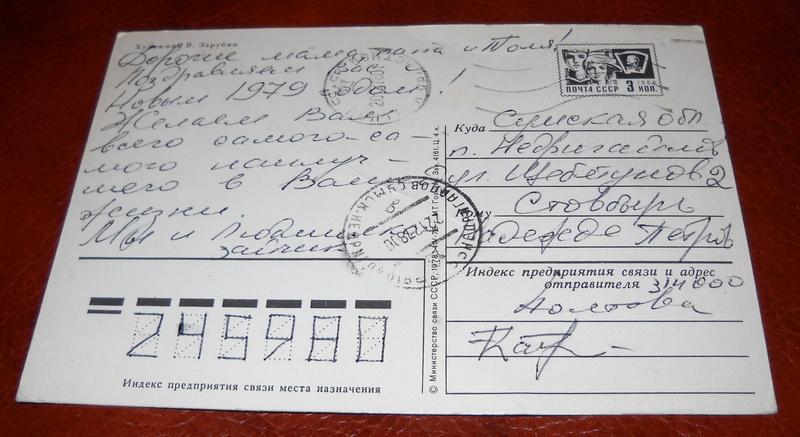 Художник В. Зарубин
Дорогие мама, папа и Толя!
Поздравляем Вас с
Новым 1979 годом!
Желаем Вам
всего самого-са-
мого наилуч-
шего в Вашей
жизни.
Мы и Людмилка
зайчик
1966
ПОЧТА СССР 3 КОП.
Куда Сумская обл
п. Недригайлов
ул. Щебетунов 2
Кому Стовбырь
Надежде Петров
Индекс предприятия связи и адрес
отправителя 314000
Полтава
245980
Индекс предприятия связи места назначения
© Министерство связи СССР, 1978